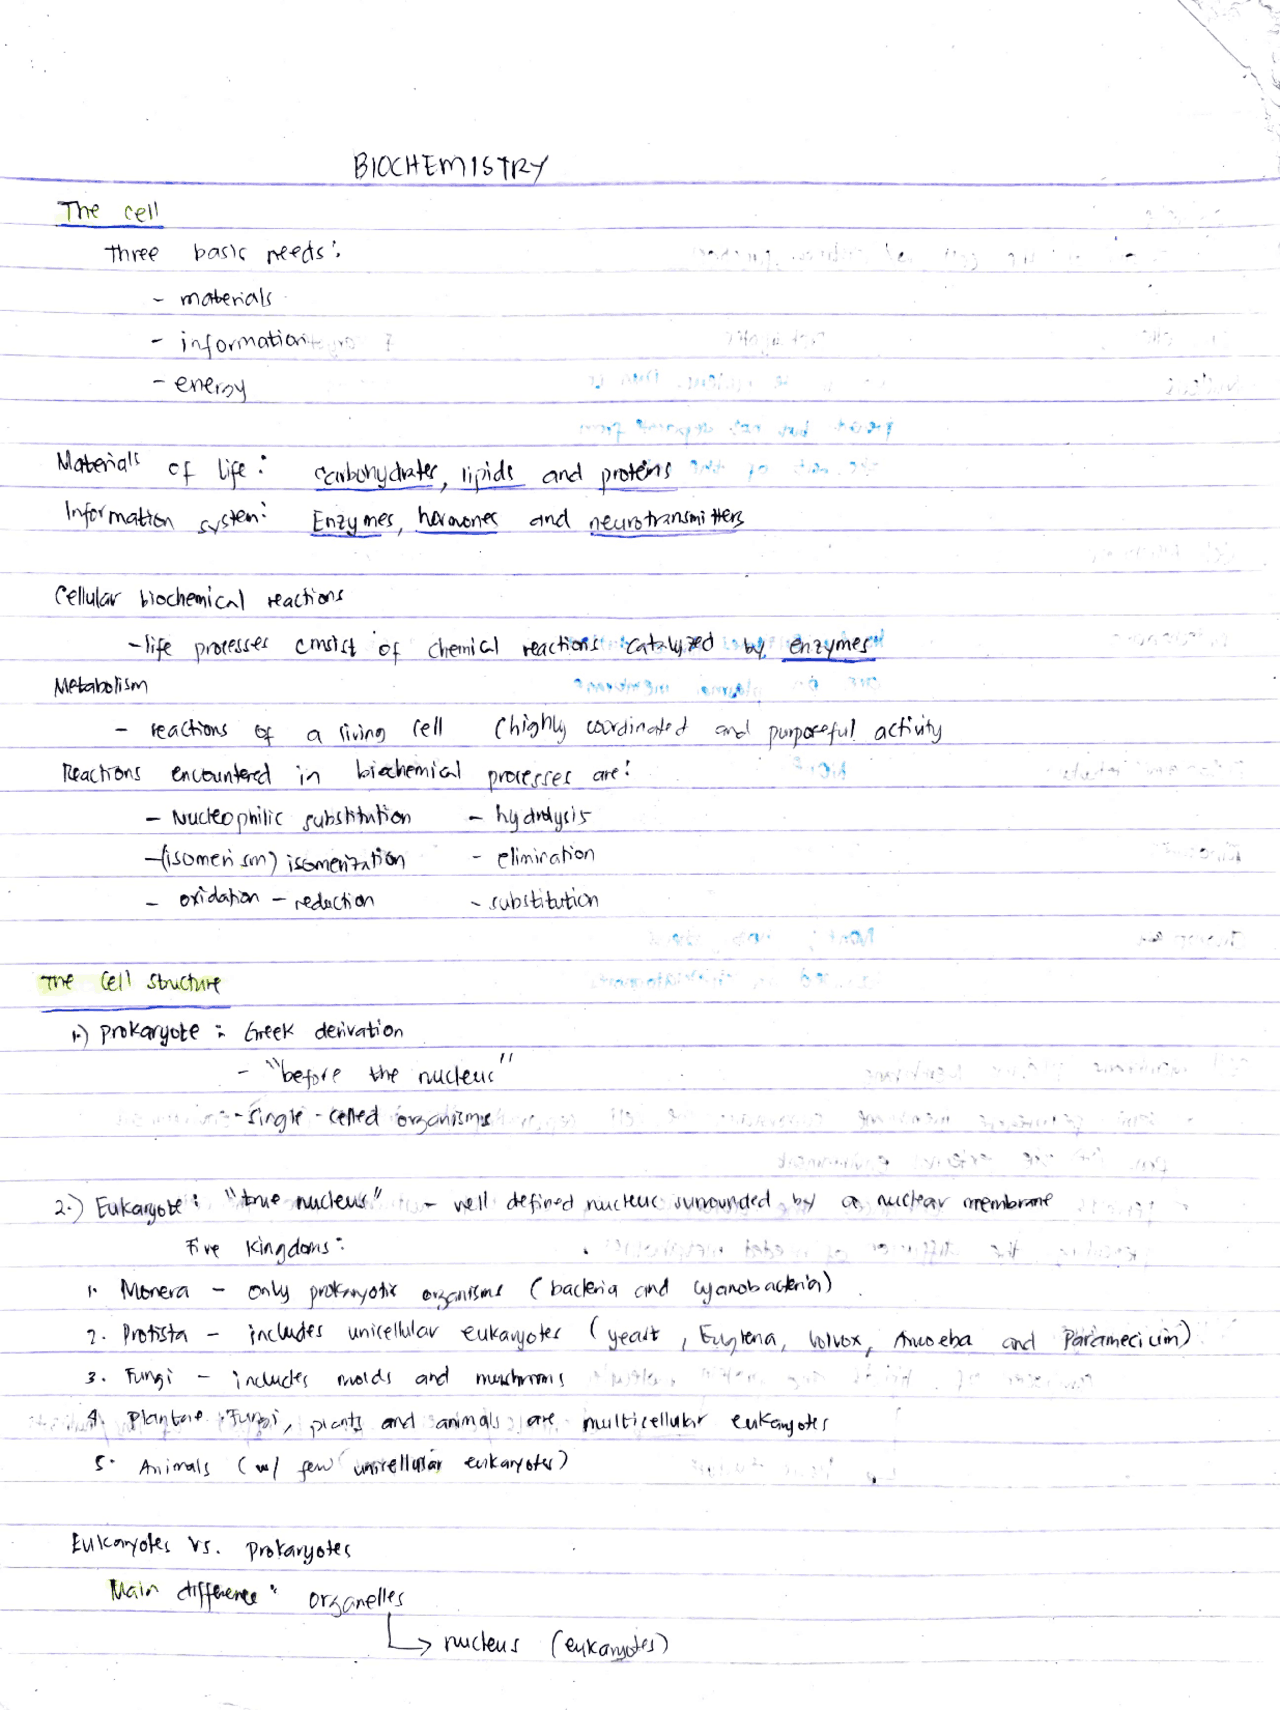 BIOCHEMISTRY
The cell
Three basic needs:
- materials
- information
- energy
Materials of life: carbohydrates, lipids and proteins
Information system: Enzymes, hormones and neurotransmitters
Cellular biochemical reactions
- life processes consist of chemical reactions catalyzed by enzymes
Metabolism
- reactions of a living cell (highly coordinated and purposeful activity
Reactions encountered in biochemical processes are:
- Nucleophilic substitution - hydrolysis
- (isomerism) isomerization - elimination
- oxidation - reduction - substitution
The Cell Structure
1.) Prokaryote: Greek derivation
- "before the nucleus"
- single-celled organisms
2.) Eukaryote: "true nucleus" - well defined nucleus surrounded by a nuclear membrane
Five Kingdoms:
1. Monera - only prokaryotic organisms (bacteria and cyanobacteria)
2. Protista - includes unicellular eukaryotes (yeast, Euglena, Volvox, Amoeba and Paramecium)
3. Fungi - includes molds and mushrooms
4. Plantae. Fungi, plants and animals are multicellular eukaryotes
5. Animals (w/ few unicellular eukaryotes)
Eukaryotes vs. Prokaryotes
Main difference: organelles
→ nucleus (eukaryotes)